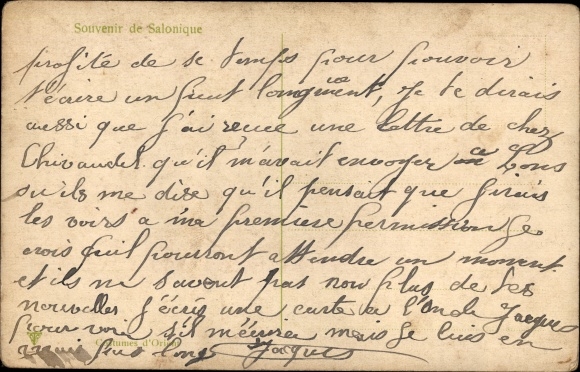 Souvenir de Salonique
profité de se temps pour pouvoir
t'écrire un peut longuement, Je te dirais
aussi que j'ai recue une lettre de chez
qu'il m'avait envoyer a
ou ils me dise qu'il pensait que j'irais
les voirs a ma premiere permission Je
crois qu'il pourront attendre un moment
et ils ne savent pas non plus de tes
nouvelles. J'écris une carte a l'Oncle Jacques
pour voir s'il m'écrira mais je suis en
Costumes d'Orient
plus long Jacques